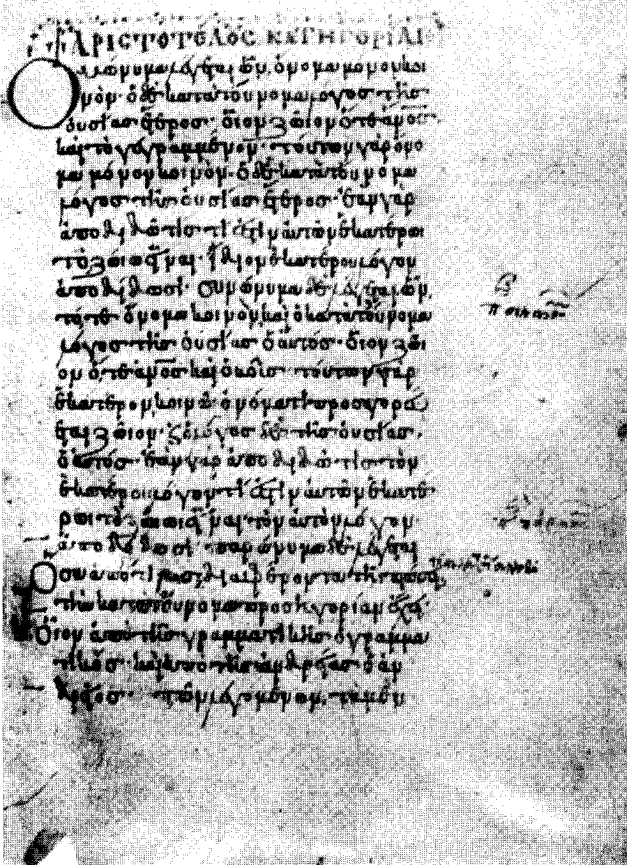 ἈΡΙCΤΟΤΈΛΟΥC ΚΑΤΗΓΟΡΙΑΙ
Ὁμώνυμα λέγεται ὧν ὄνομα μόνον κοι
νὸν· ὁ δὲ κατὰ τοὔνομα λόγος τῆς
οὐσίας ἕτερος· οἷον ζῶιον ὅ τε ἄνος
καὶ τὸ γεγραμμένον· τούτων γὰρ ὄνο
μα μόνον κοινὸν· ὁ δὲ κατὰ τοὔνομα
λόγος τῆς οὐσίας ἕτερος· ἐὰν γὰρ
ἀποδιδῶ τίς τί ἐστιν αὐτῶν ἑκατέρωι
τὸ ζώιωι εἶναι· ἴδιον ἑκατέρου λόγον
ἀποδώσει· συνώνυμα δὲ λέγεται ὧν
τό τε ὄνομα κοινὸν καὶ ὁ κατὰ τοὔνομα
λόγος τῆς οὐσίας ὁ αὐτός· οἷον ζῶι
ον ὅ τε ἄνος καὶ ὁ βοῦς· τούτων γὰρ
ἑκάτερον κοινῶι ὀνόματι προσαγορεύ
εται ζῶιον· καὶ ὁ λόγος δὲ τῆς οὐσίας·
ὁ αὐτός· ἐὰν γὰρ ἀποδιδῶ τις τὸν
ἑκατέρου λόγον τί ἐστιν αὐτῶν ἑκατέ
ρωι τὸ ζώιωι εἶναι τὸν αὐτὸν λόγον
ἀποδώσει· παρώνυμα δὲ λέγεται
ὅσα ἀπό τινος διαφέροντα τῆι πτώσει
τὴν κατὰ τοὔνομα προσηγορίαν ἔχει·
οἷον ἀπὸ τῆς γραμματικῆς ὁ γραμμα
τικὸς· καὶ ἀπὸ τῆς ἀνδρείας ὁ ἀν
δρεῖος· τῶν λεγομένων τὰ μὲν